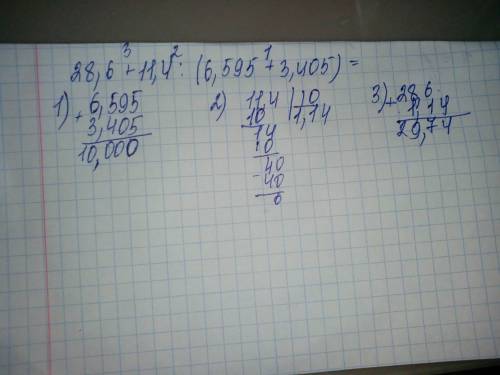 28,6 +³ 11,4 :² (6,595 +¹ 3,405) =
1) + 6,595
3,405
10,000
2) 11,4 | 10
10 1,14
14
10
- 40
40
0
3) + 28,6
1,14
29,74